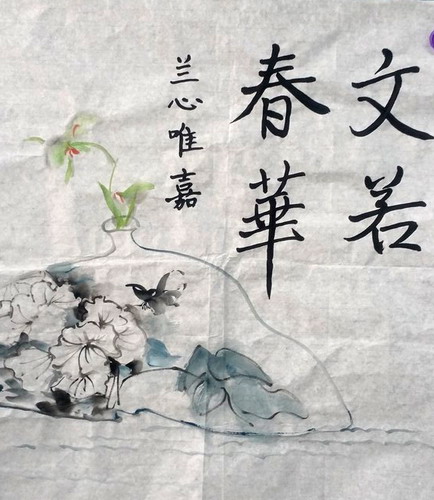 文若
春華
兰心唯嘉